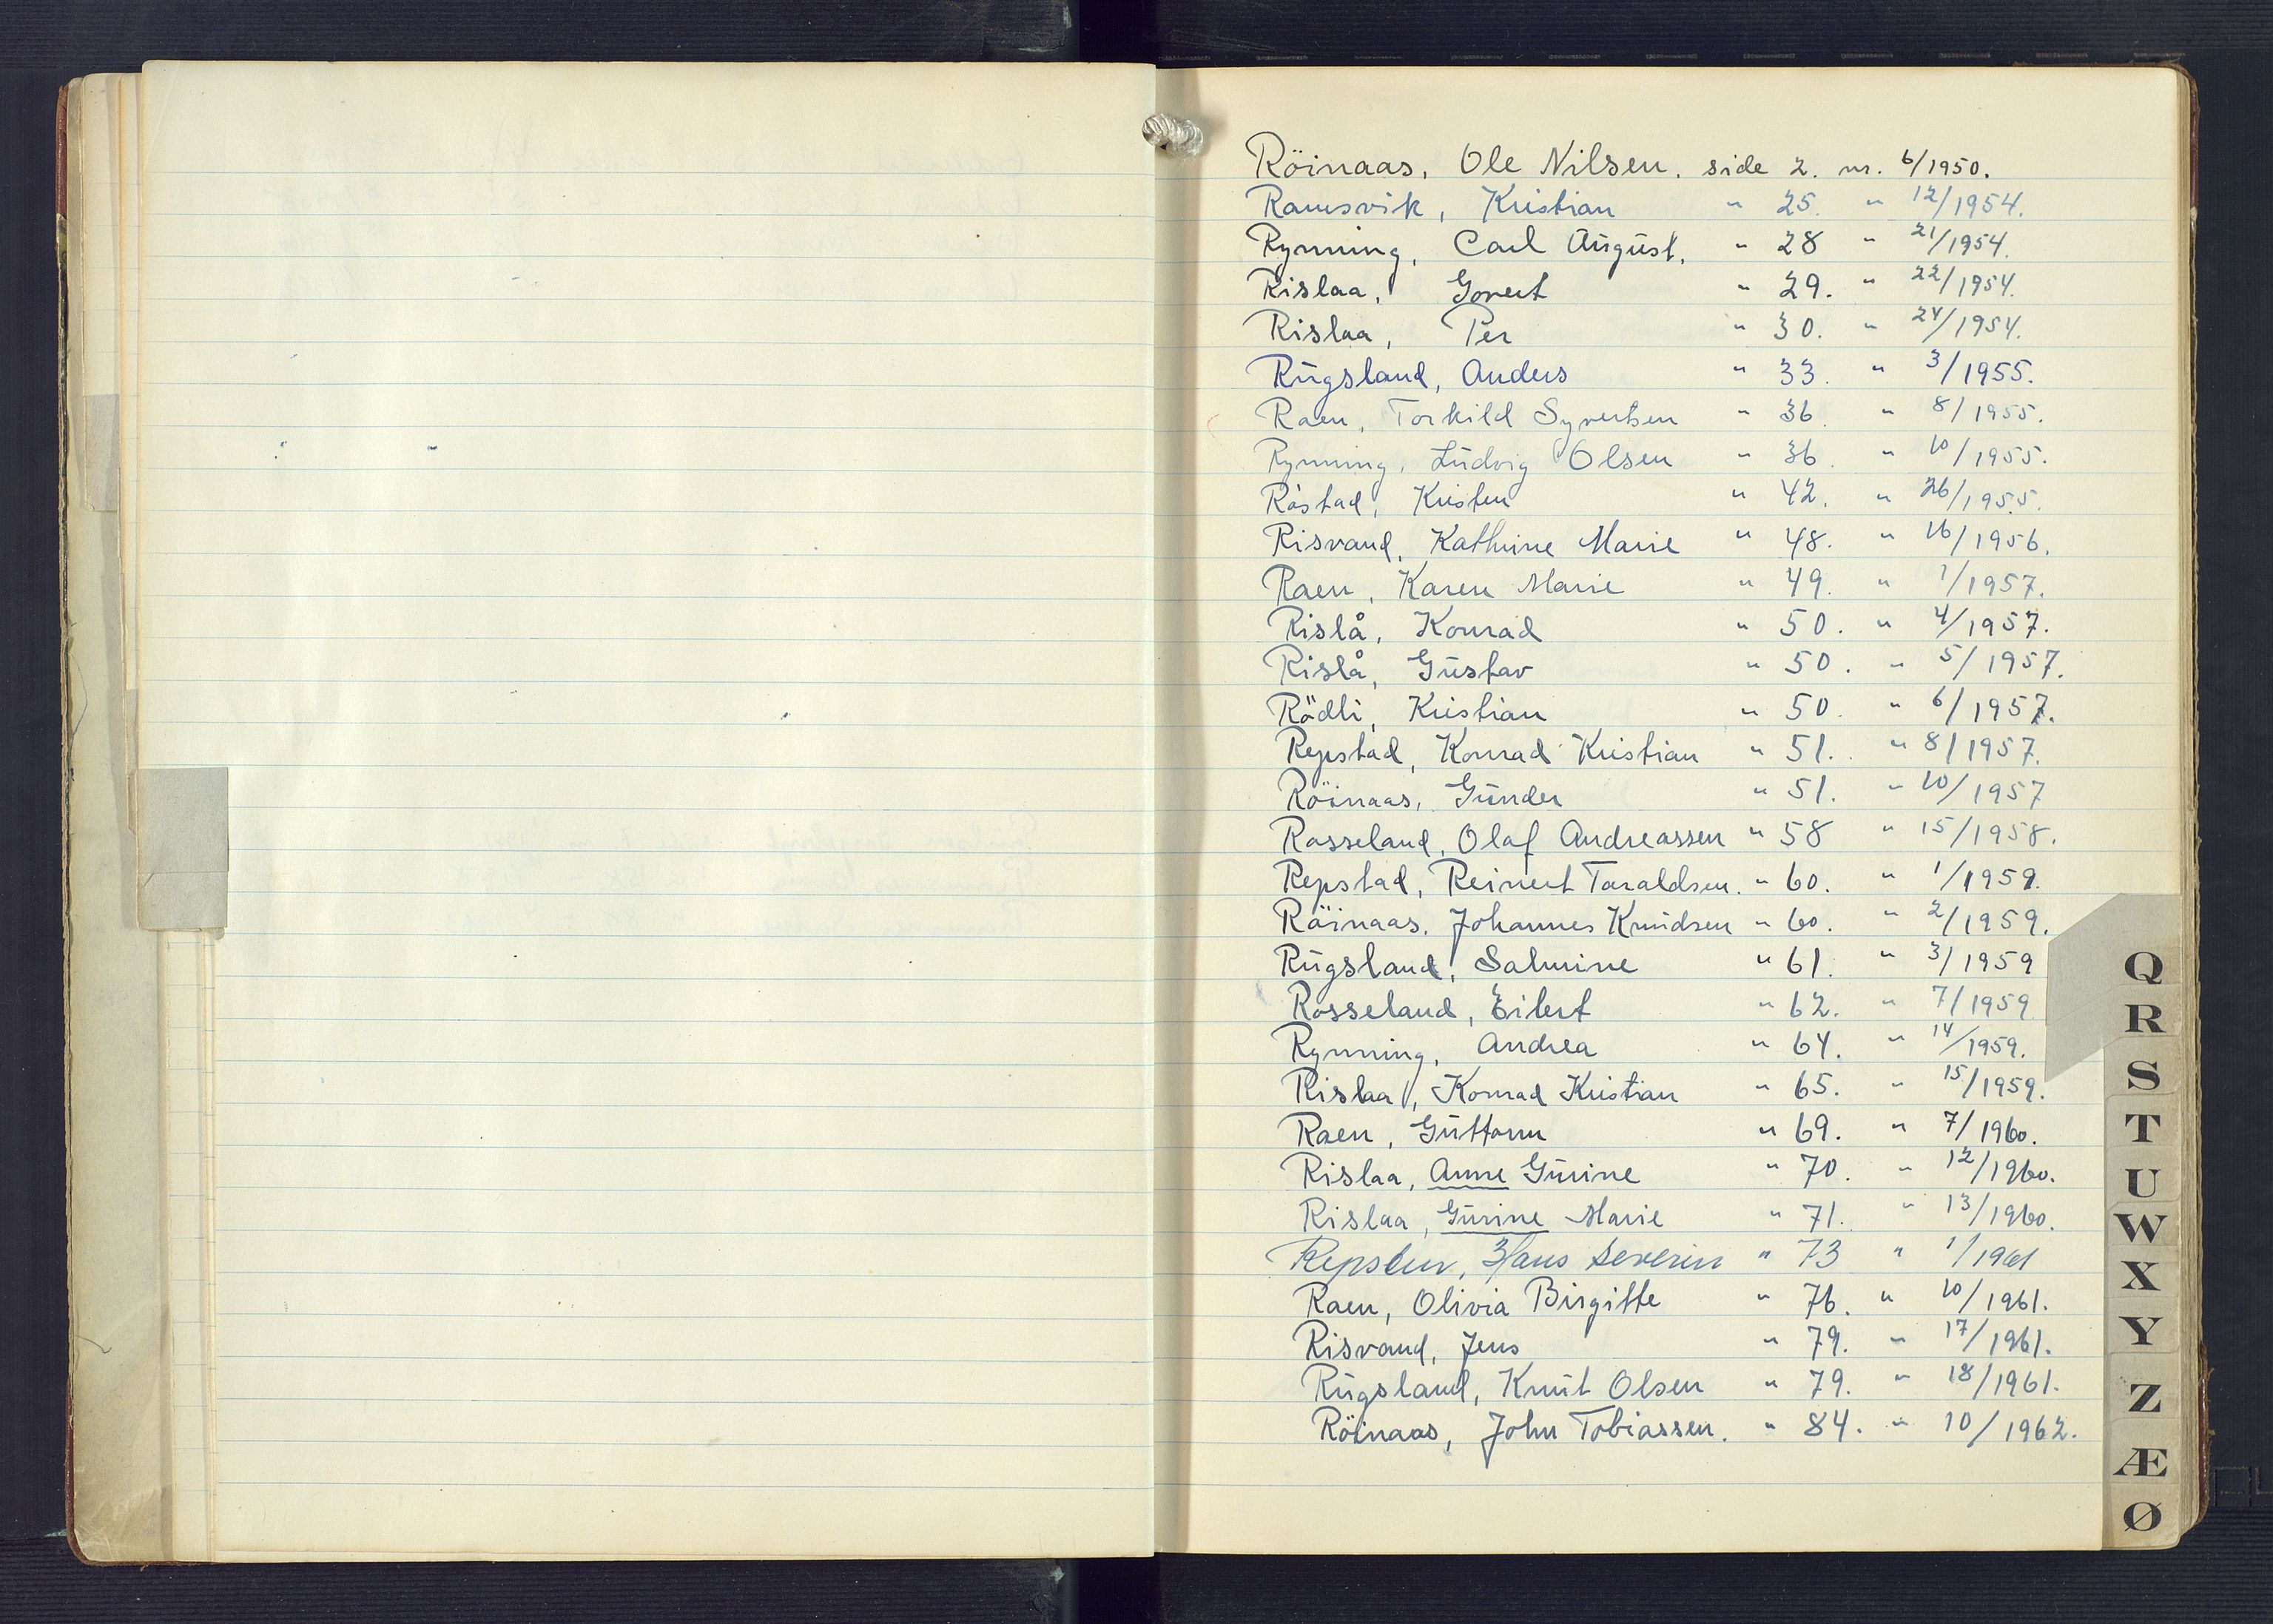 Röinaas, Ole Nilsen. side 2. nr. 6/1950.
Ramsvik, Kristian " 25. " 12/1954.
Rynning, Carl August. " 28 " 21/1954.
Rislaa, Govert " 29. " 22/1954.
Rislaa, Per " 30. " 24/1954.
Rugsland, Anders " 33. " 3/1955.
Raen, Torkild Syvertsen " 36. " 8/1955.
Rynning, Ludvig Olsen " 36. " 10/1955.
Röstad, Kristen " 42. " 26/1955.
Risvand, Kathrine Marie " 48. " 16/1956.
Raen, Karen Marie " 49. " 1/1957.
Rislå, Konrad " 50. " 4/1957.
Rislå, Gustav " 50. " 5/1957.
Rödli, Kristian " 50. " 6/1957.
Repstad, Konrad Kristian " 51. " 8/1957.
Röinaas, Gunder " 51. " 10/1957
Rosseland, Olaf Andreassen " 58 " 15/1958.
Repstad, Reinert Taraldsen. " 60. " 1/1959.
Röinaas. Johannes Knudsen " 60. " 2/1959.
Rugsland, Salmine " 61. " 3/1959
Rosseland, Eilert " 62. " 7/1959
Rynning, Andrea " 64. " 14/1959.
Rislaa, Konrad Kristian " 65. " 15/1959.
Raen, Guttorm " 69. " 7/1960.
Rislaa, Anne Gurine " 70. " 12/1960.
Rislaa, Gurine Marie " 71. " 13/1960.
Hans Severin " 73 " 1/1961
Raen, Olivia Birgitte " 76. " 10/1961.
Risvand, Jens " 79. " 17/1961.
Rugsland, Knut Olsen " 79. " 18/1961.
Röinaas, John Tobiassen. " 84. " 10/1962.
Q
R
S
T
U
W
X
Y
Z
Æ
Ø